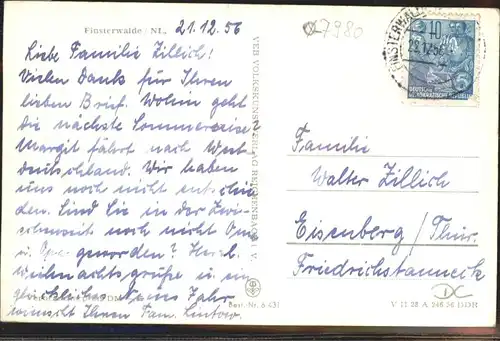 Finsterwalde / NL.
21.12.56
Liebe Familie Zillich!
Vielen Dank für Ihren
lieben Brief. Wohin geht
die nächste Sommerreise?
Margit fährt nach West-
deutschland. Wir haben
uns noch nicht entschie
den. Sind Sie in der Zwi-
schenzeit noch nicht Oma
u. Opa geworden? Herzl.
Weihnachtsgrüße u. ein
glückliches Neues Jahr
wünscht Ihnen Fam.
VEB VOLKSKUNSTVERLAG REICHENBACH
Best.-Nr. 6 431
7980
10
DEUTSCHE
DEMOKRATISCHE REPUBLIK
Familie
Walter Zillich
Eisenberg / Thür.
Friedrichstanneck
V 11 28 A 246 56 DDR